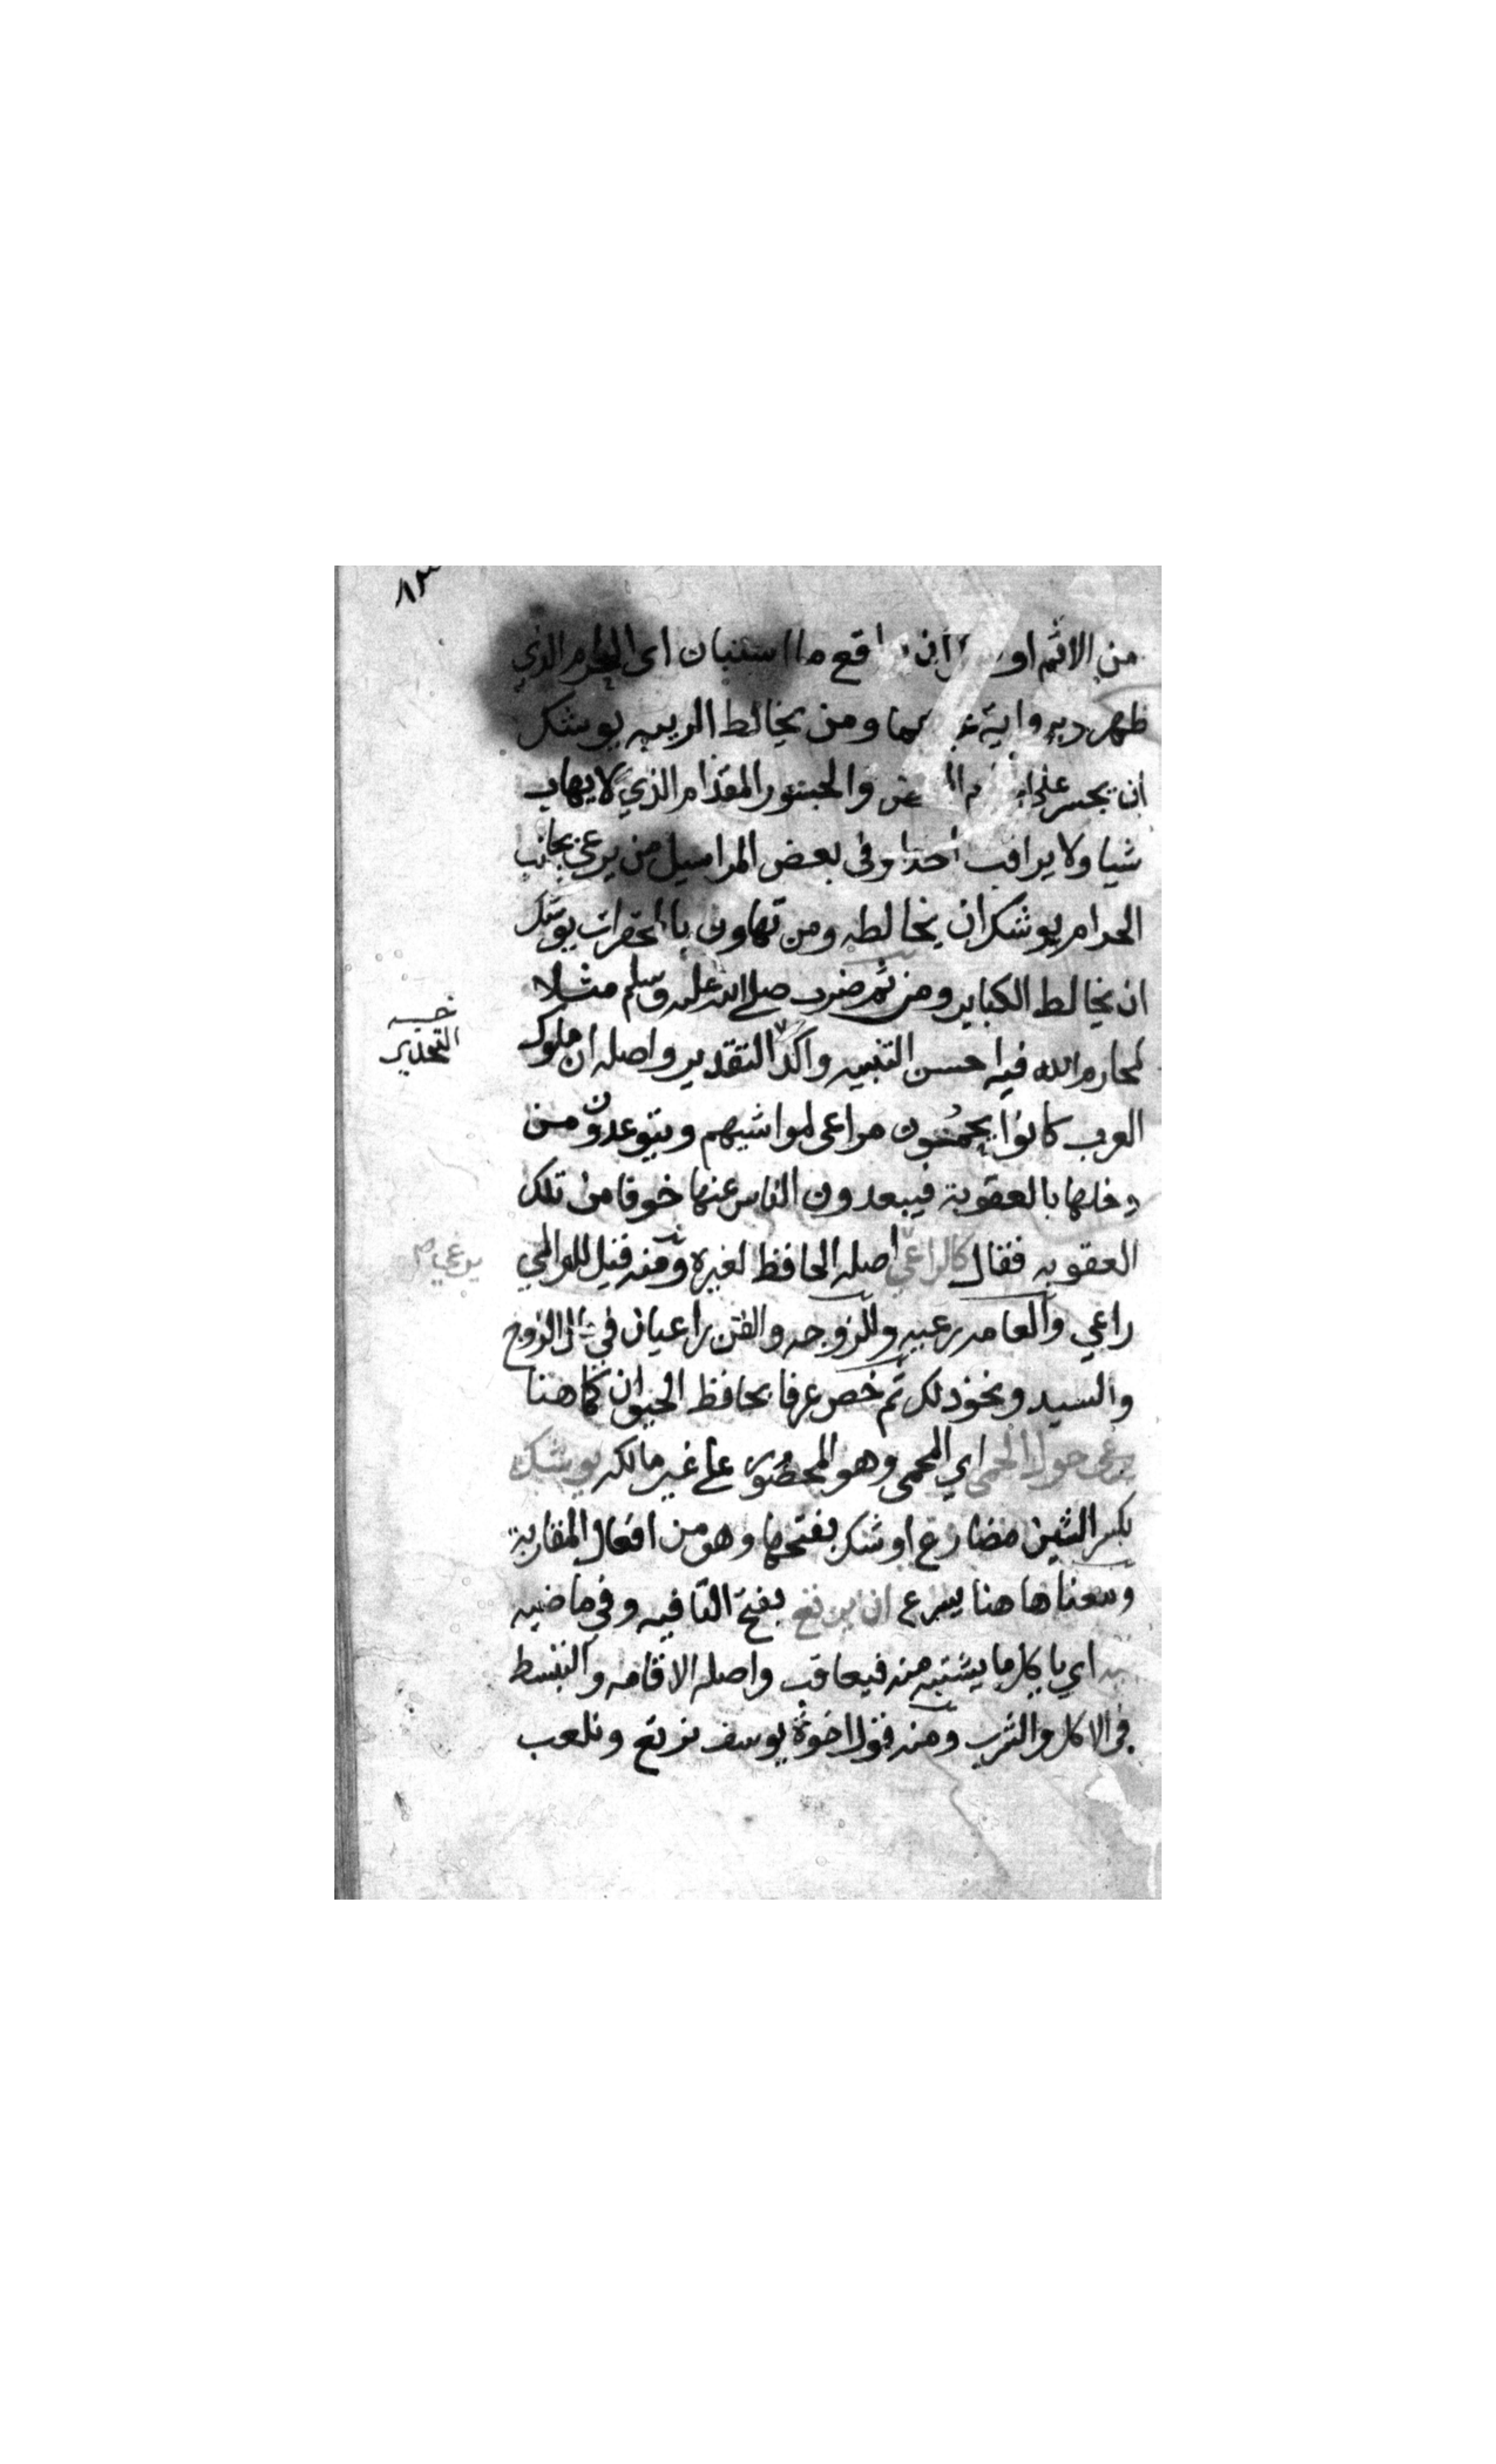 ٨٣
من الاثم او ان واقع ما استبان اى الحرام الذي
ظهر وبرواية غيرهما ومن يخالط الريبه يوشك
ان يجسر على والجسور المقدام الذي لا يهاب
شيا ولا يراقب احدا وفى بعض المراسيل من يرعى بجانب
الحرام يوشك ان يخالطه ومن تهاون بالمحقرات يوشك
ان يخالط الكباير ومن ثم ضرب صلى الله عليه وسلم مثلا
لمحارم الله فيه احسن التنبيه واكد التقدير واصله ان ملوك
التحذير
العرب كانوا يحمون مراعى لمواشيهم ويتوعدون من
دخلها بالعقوبة فيبعدون الناس عنها خوفا من تلك
العقوبه فقال كالراعي اصله الحافظ لغيره ومنه قيل للوالي
يرعى
راعي والعامه رعيه وللزوجه والقن راعيان في مال الزوج
والسيد ونحو ذلك ثم خص عرفا بحافظ الحيوان كما هنا
يرعى حول الحمى اي المحمى وهو المحضور على غير مالكه يوشك
بكسر الشين مضارع اوشك بفتحها وهو من افعال المقاربة
ومعناها هنا يسرع ان يرتع بفتح التا فيه وفي ماضيه
اي ياكل ما يشتبه منه فيعاقب واصله الاقامه والتبسط
فى الاكل والشرب ومنه قول اخوة يوسف نرتع ونلعب